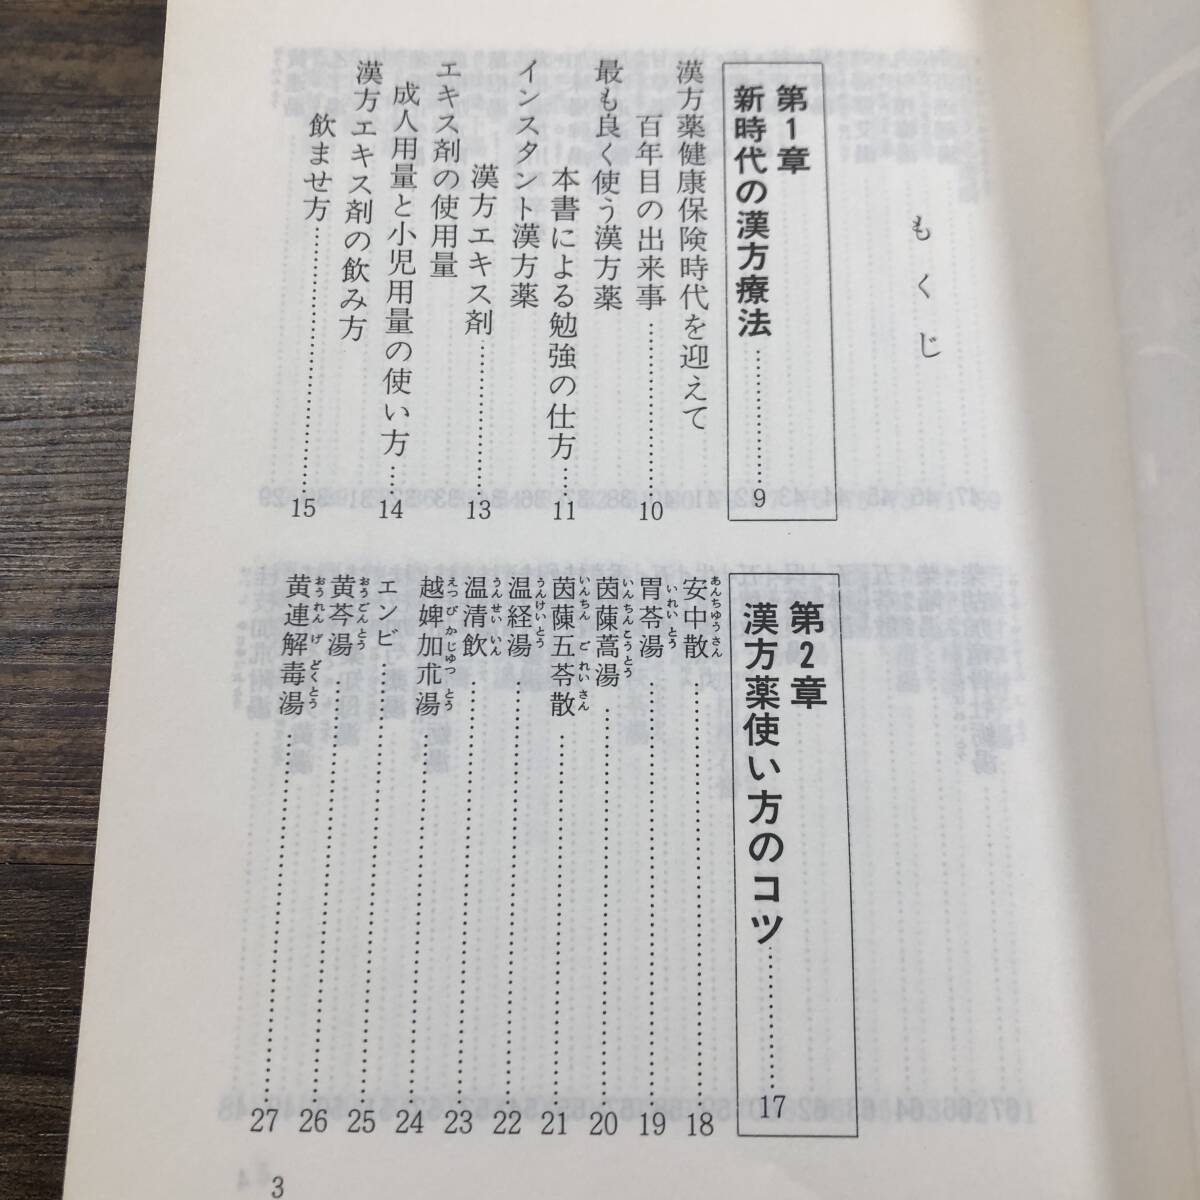 もくじ
第1章
新時代の漢方療法…………9
漢方薬健康保険時代を迎えて
百年目の出来事…………10
最も良く使う漢方薬
本書による勉強の仕方…11
インスタント漢方薬
漢方エキス剤…………13
エキス剤の使用量
成人用量と小児用量の使い方…14
漢方エキス剤の飲み方
飲ませ方…………15
第2章
漢方薬使い方のコツ…………17
安中散…………18
あんちゅうさん
胃苓湯…………19
いれいとう
茵蔯蒿湯…………20
いんちんこうとう
茵蔯五苓散…………21
いんちんごれいさん
温経湯…………22
うんけいとう
温清飲…………23
うんせいいん
越婢加朮湯…………24
えつびかじゅつとう
エンビ…………25
黄芩湯…………26
おうごんとう
黄連解毒湯…………27
おうれんげどくとう
3